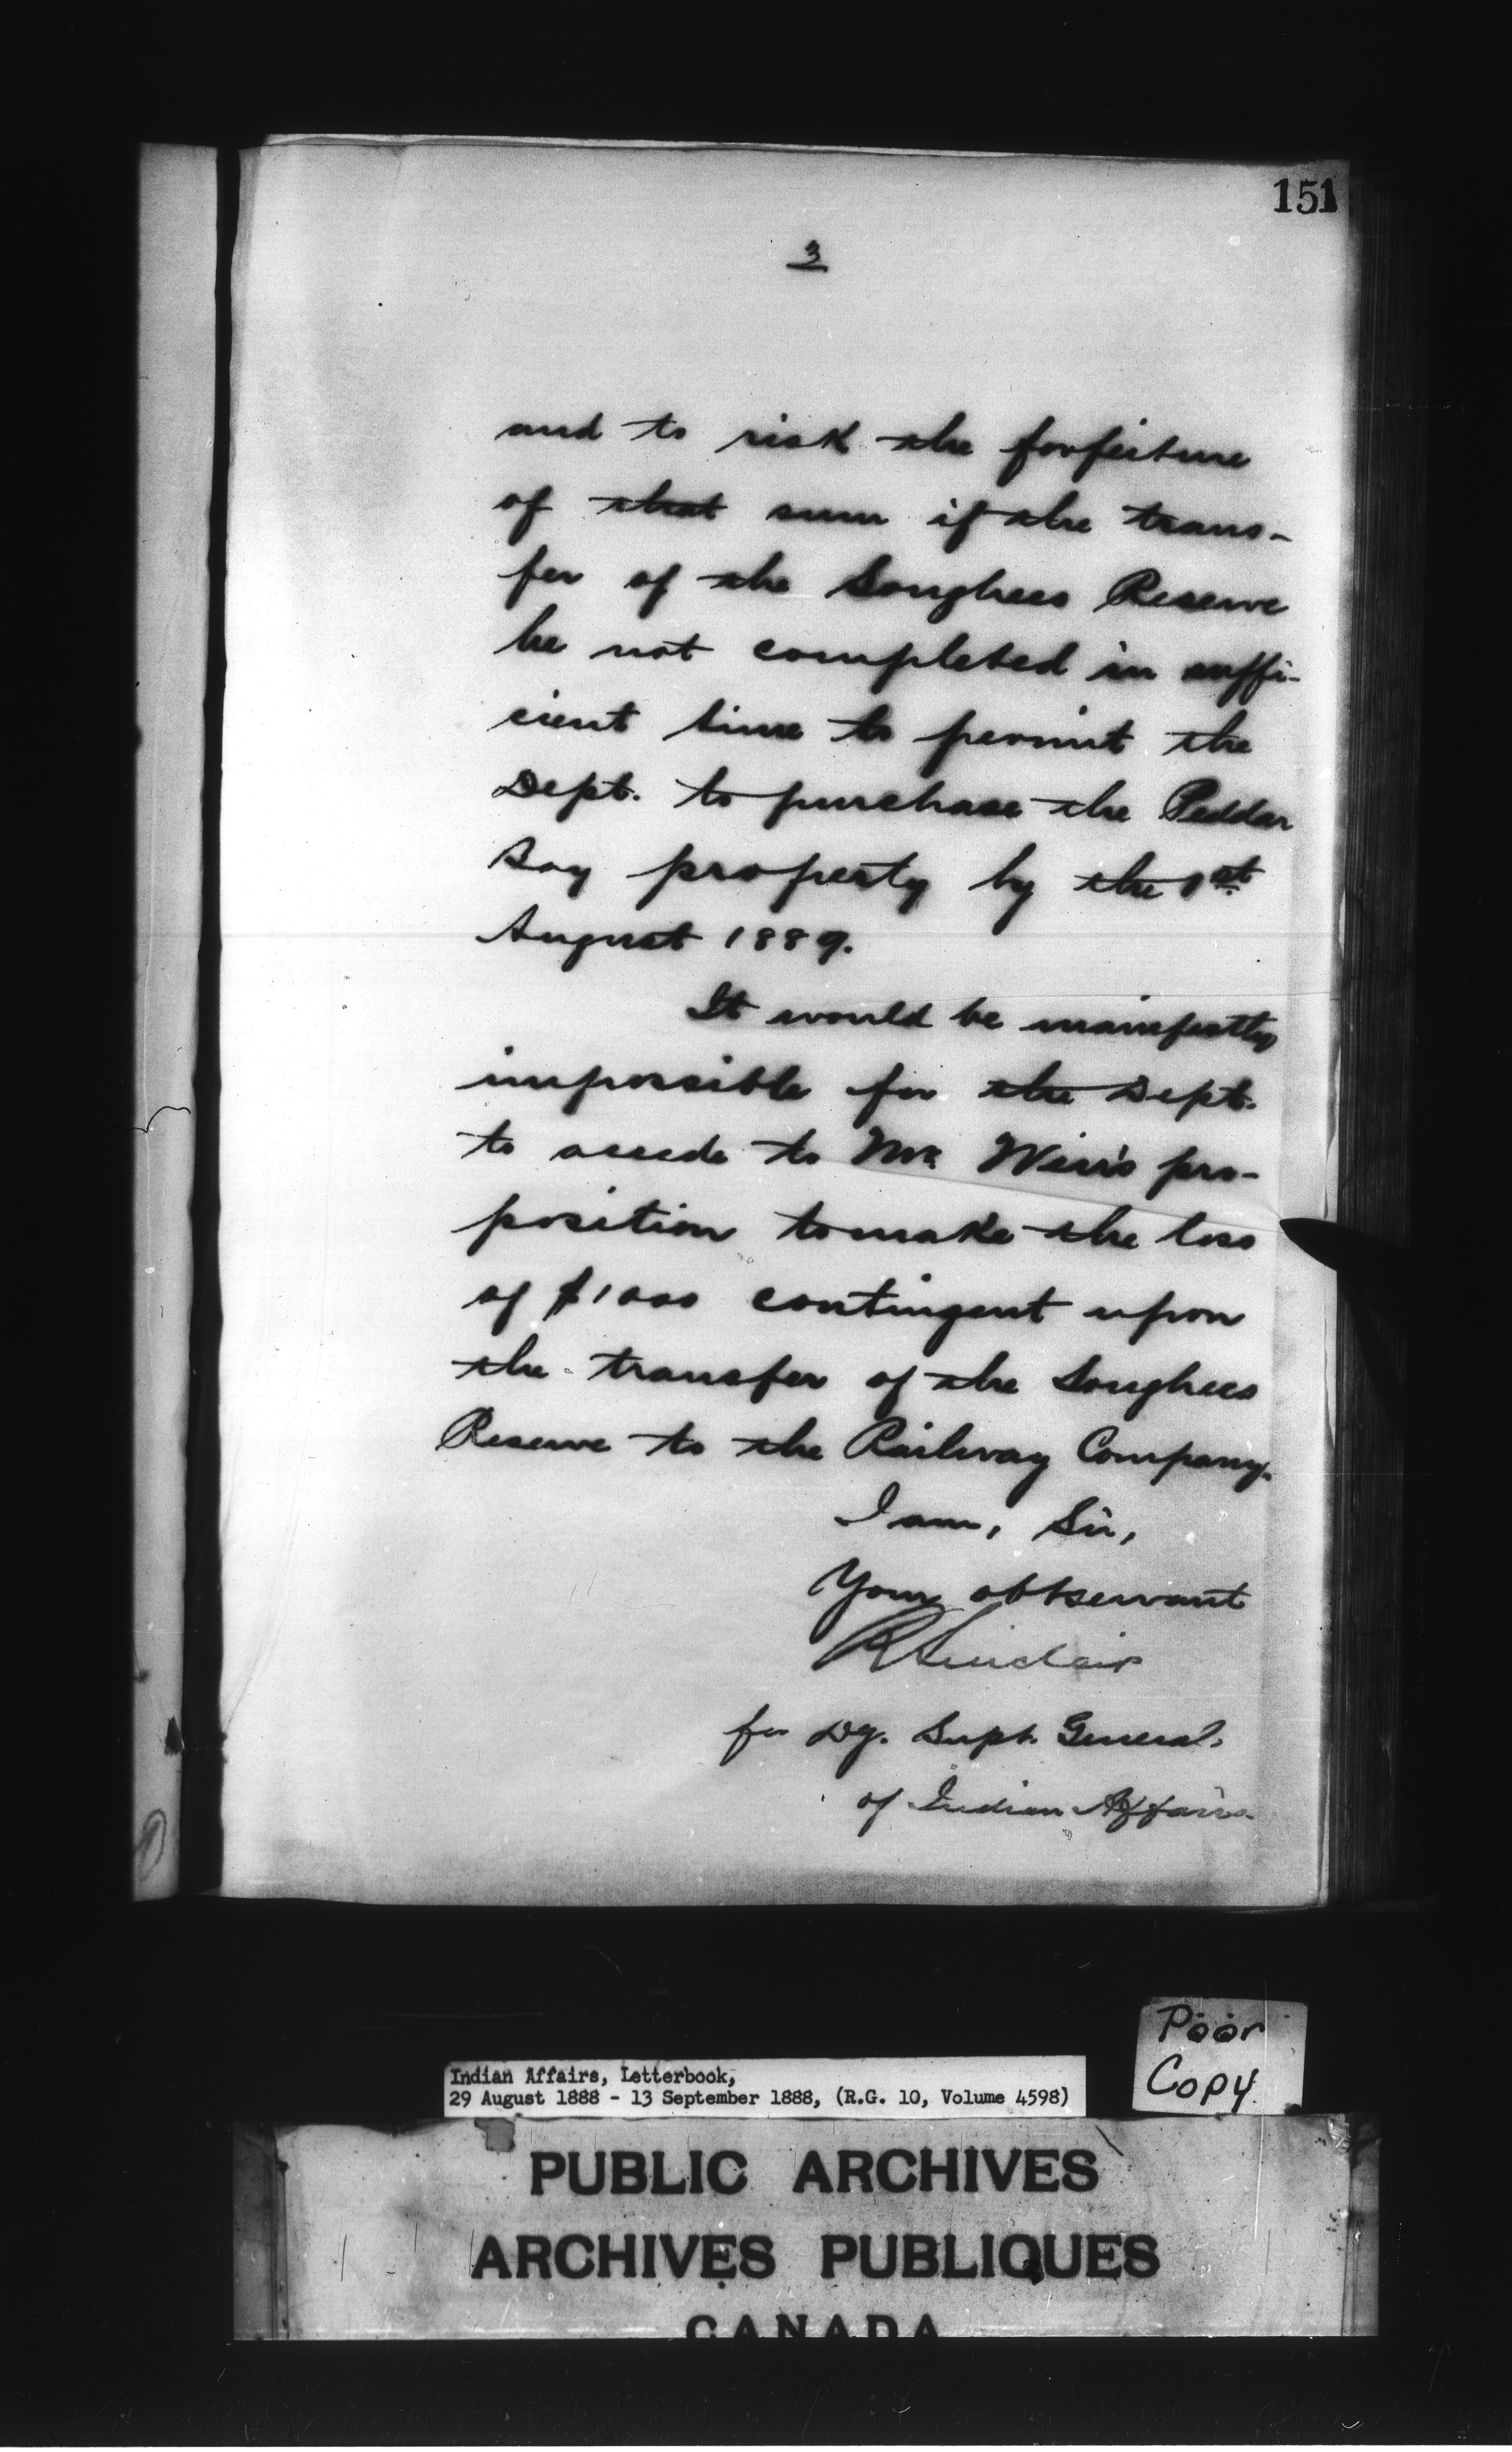 151
3
and to risk the forfeiture
of that sum if the trans-
fer of the Songhees Reserve
be not completed in suffi-
cient time to permit the
Dept. to purchase the Peddar
Bay property by the 1st
August 1889.
It would be manifestly
impossible for the Dept.
to accede to Mr. Weir's pro-
position to make the loss
of $1000 contingent upon
the transfer of the Songhees
Reserve to the Railway Company.
I am, Sir,
Your obt servant
R Sinclair
for Dy. Supt. General.
of Indian Affairs.
Poor
Copy.
Indian Affairs, Letterbook,
29 August 1888 - 13 September 1888, (R.G. 10, Volume 4598)
PUBLIC ARCHIVES
ARCHIVES PUBLIQUES
CANADA